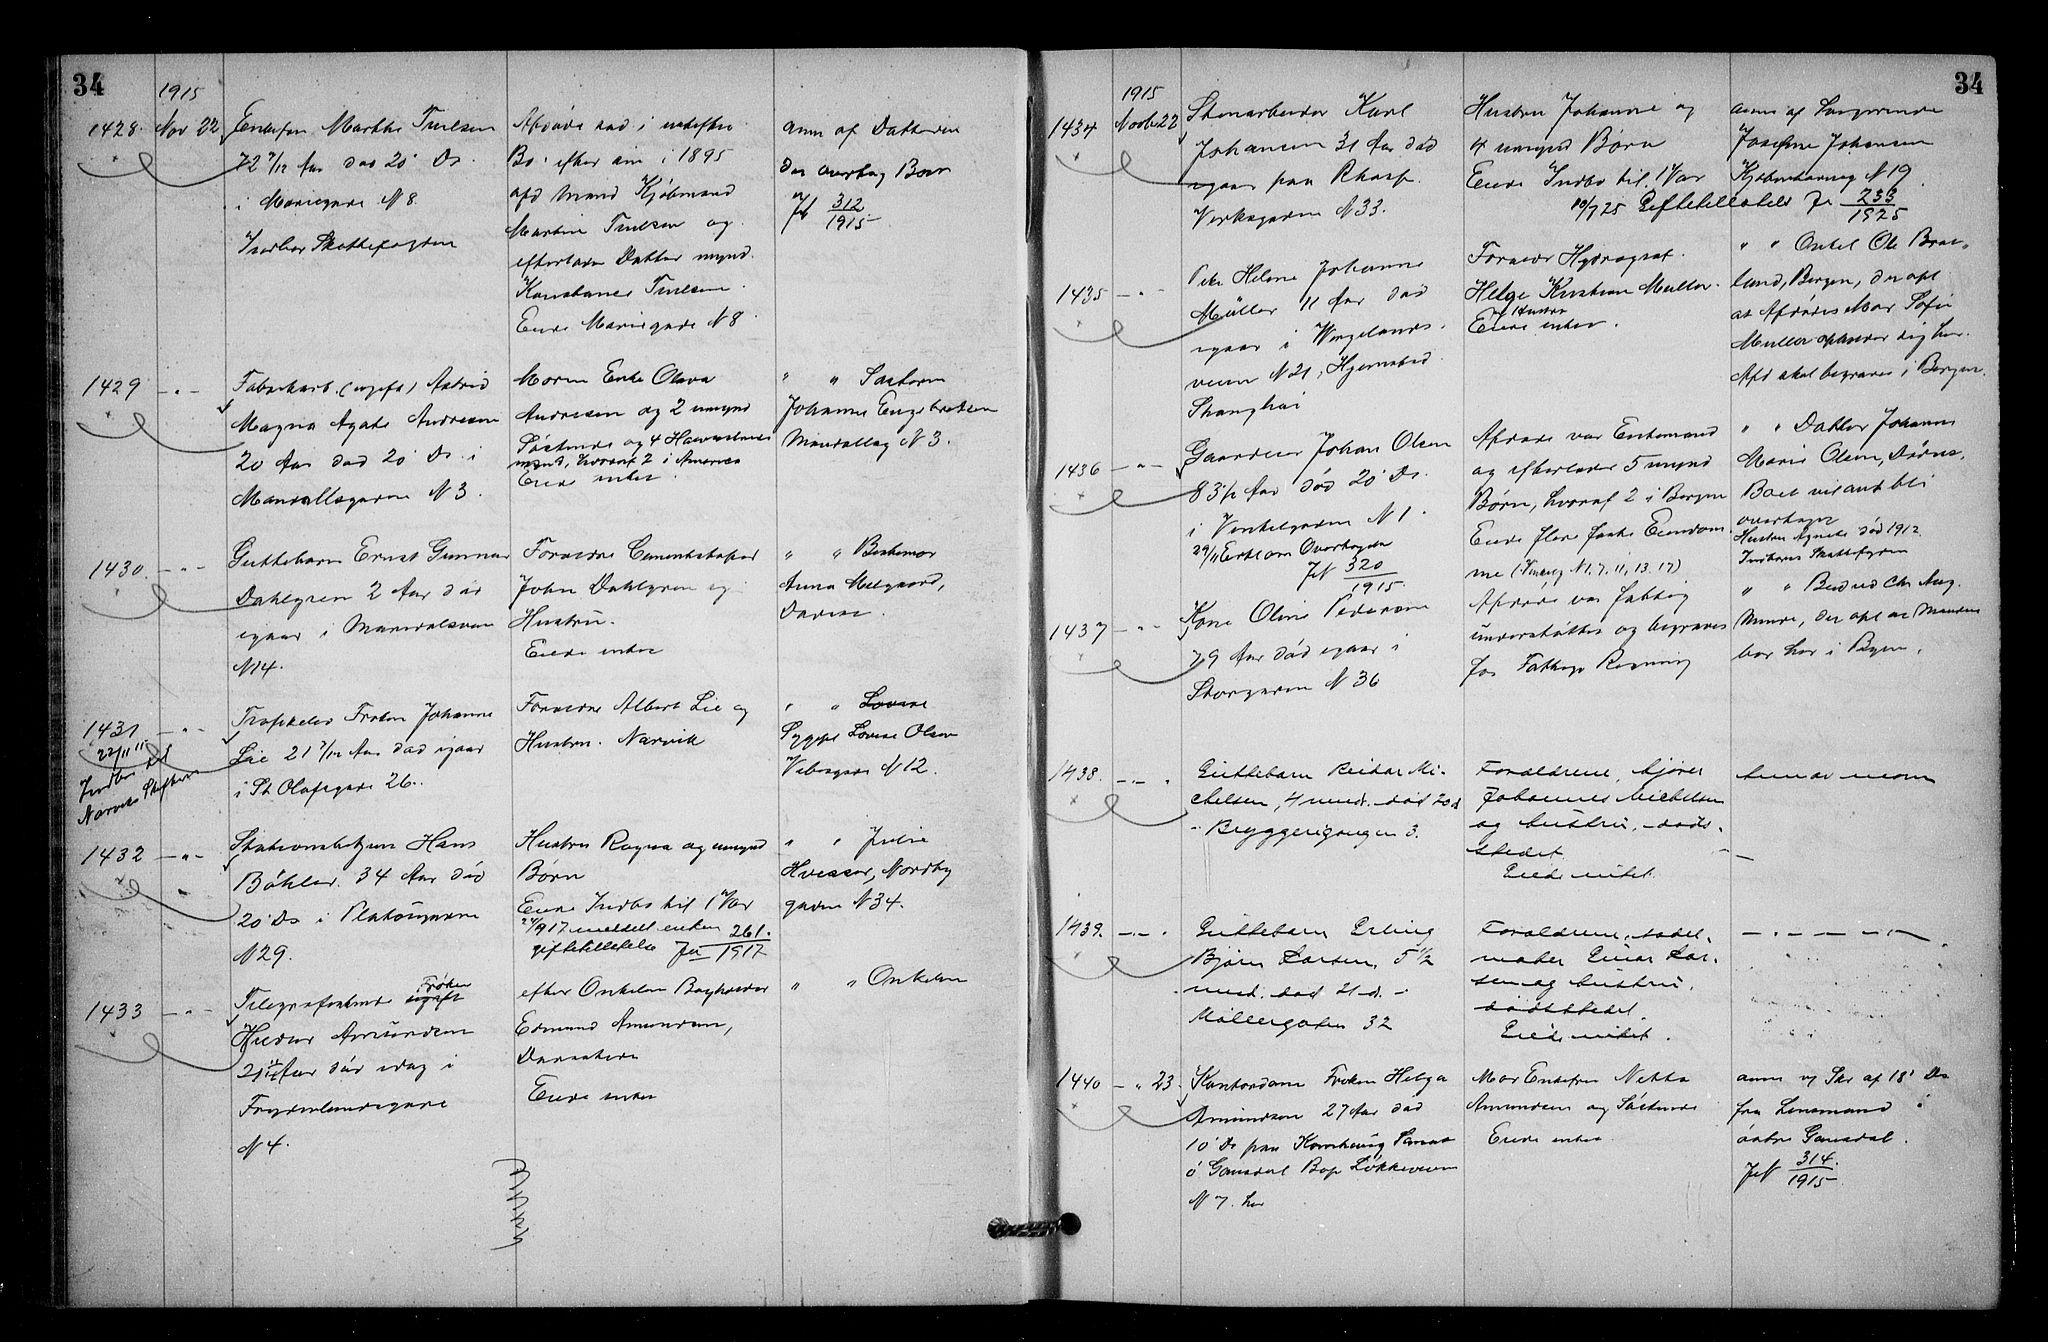 34
1915
1428. Nov 22
Enkefru Marthe Truelsen
72 7/12 Aar død 20' Ds.
i Mariegade N 8.
Indber Skattefogden
Afdøde sad i uskiftet
Bo efter sin i 1895
afd Mand Kjøbmand
Martin Truelsen og
efterlader Datter mynd.
Konstance Truelsen.
Eiede Mariegade N 8.
anm af Datteren
der overtog Boet
JN 312/1915
1429 - " -
Fabrikarb. (ugift) Astrid
Magna Agate Andresen
20 Aar død 20' Ds. i
Maridalsgaden N 3.
Moren Enke Olava
Andresen og 2 umynd
Søskende og 4 Halvsøskende
mynd, hvoraf 2 i Amerika
Eiede intet.
" " Søsteren
Johanne Engebretsen
Maridallsg N 3.
1430. - " -
Guttebarn Ernst Gunnar
Dahlgren 2 Aar død
igaar i Maridalsveien
N 14.
Forældre Cementstøper
John Dahlgren og
Hustru.
Eiede intet
" " Bestemor
Anna Melgaard,
Dødsst.
1431 - " -
22/11 15
Indber til
Narviks Skifteret
Frøken Johanne
Lie 21 7/12 Aar død igaar
i St Olafsgade 26.
Forældre Albert Lie og
Hustru. Narvik
" " Lovise
Sygepl Lovise Olsen
Vibesgade N 12.
1432 - " -
Stationsbetjent Hans
Bøhler. 34 Aar død
20' Ds i Platousgaden
N 29.
Hustru Ragna og umynd
Børn
Eiede Indbo til 1 Vær
/9 17 meddelt enken
giftetilladelse JN 261/1917
" " Julie
Hvesser, Nordby
gaden N 34.
1433 - " -
Telegrafistinde ugift Frøken
Amundsen
21 Aar død idag i
Frydenlundsgade
N 4.
efter Onkelen Bogholder
Edmund Amundsen,
Dødsstedet
Eiede intet
" " Onkelen
34
1915
1434 Novbr 22
Stenarbeider Karl
Johansen 31 Aar død
igaar paa Rhosp.
Verksgaden N 33.
Hustru Johanne og
4 umynd Børn
Eiede Indbo til 1 Vær
10/7 25 Giftetilladelse JN 233/1925
anm af Svigerinde
Josefine Johansen
N 19
1435 - " -
Pike Helene Johanne
Müller 11 Aar død
igaar i Wergelands-
veien N 21, Hjemsted
Shanghai
Forældre Hydrograf
Helge Kristian Muller.
og Hustru
Eiede intet.
" " Onkel Ole Brat-
land, Bergen, der opl
at Afdødes Mor Sofie
Muller opholder sig her.
Afd skal begraves i Bergen.
1436 - " -
Gaardeier Johan Olsen
83 1/2 Aar død 20' Ds.
i Vinkelgaden N 1.
29/11 Erklær Overtagelse
JN 320/1915
Afdøde var Enkemand
og efterlader 5 mynd
Børn, hvoraf 2 i Bergen
Eiede flere faste Eiendom-
me (Vinkelg N 1, 7, 11, 13, 17)
" " Datter Johanne
Marie Olsen, Dødsst.
Boet vil ant bli
overtaget
Hustru Agnete død 1912
Indberes Skattefogden
1437 - " -
Kone Oline Pedersen
79 Aar død igaar i
Storgaden N 36
Afdøde var fattig
understøttet og begraves
for Fattigv Regning
" " Budud Chr Aug.
Munde, der opl at Manden
bor her i Byen.
1438. - " -
Guttebarn Reidar Mi-
chelsen, 4 mnd. død 20 d
- Bryggerigangen 3.
Forældrene, kjører
Johannes Michelsen
og hustru, døds-
stedet.
Eiede intet.
Anm av moren
1439. - " -
Guttebarn Erling
Bjørn Larsen, 5 1/2
mnd. død 21 d. -
Møllergaten 32
Forældrene, sadel-
maker Einar Lar-
sen og hustru,
dødsstedet.
Eiede intet.
- " - " -
1440 - " 23.
Kontordame Frøken Helga
Amundsen 27 Aar død
10' Ds paa Kornhaug Sanat
i Gausdal Bop Løkkeveien
N 7. her
Mor Enkefru Netta
Amundsen og Søskende
Eiede intet
anm v Skr af 18' Ds
fra Lensmand i
østre Gausdal.
JN 314/1915